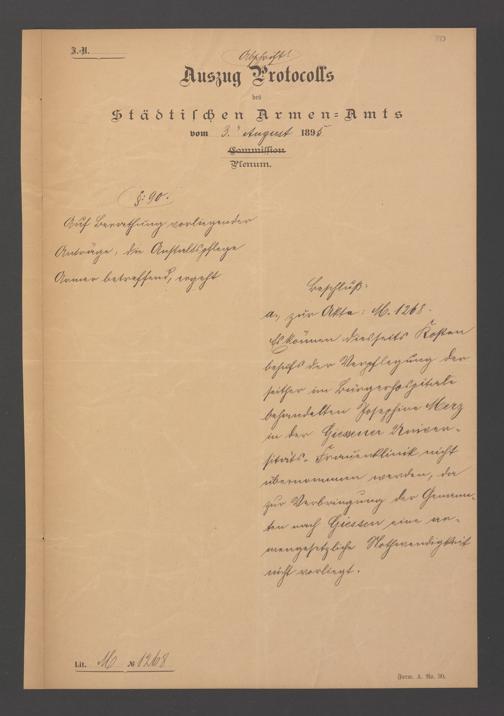 J.-N.
Abschrift!
Auszug Protocolls
des
Städtischen Armen-Amts
vom 3. August 1895
Commission
Plenum.
§: 90.
Auf Berathung vorliegender
Anträge, die Anstaltspflege
Armer betreffend, ergeht
Beschluß:
a., zur Akte: M. 1268.
Es können diesseits Kosten
behufs der Verpflegung der
seither im Bürgerhospitale
behandelten Josephine Merz
in der Giessener Univer-
sitäts-Frauenklinik nicht
übernommen werden, da
zur Verbringung der Genann-
ten nach Giessen eine ar-
mengesetzliche Nothwendigkeit
nicht vorliegt.
Lit. M № 1268
Form. A. No. 30.